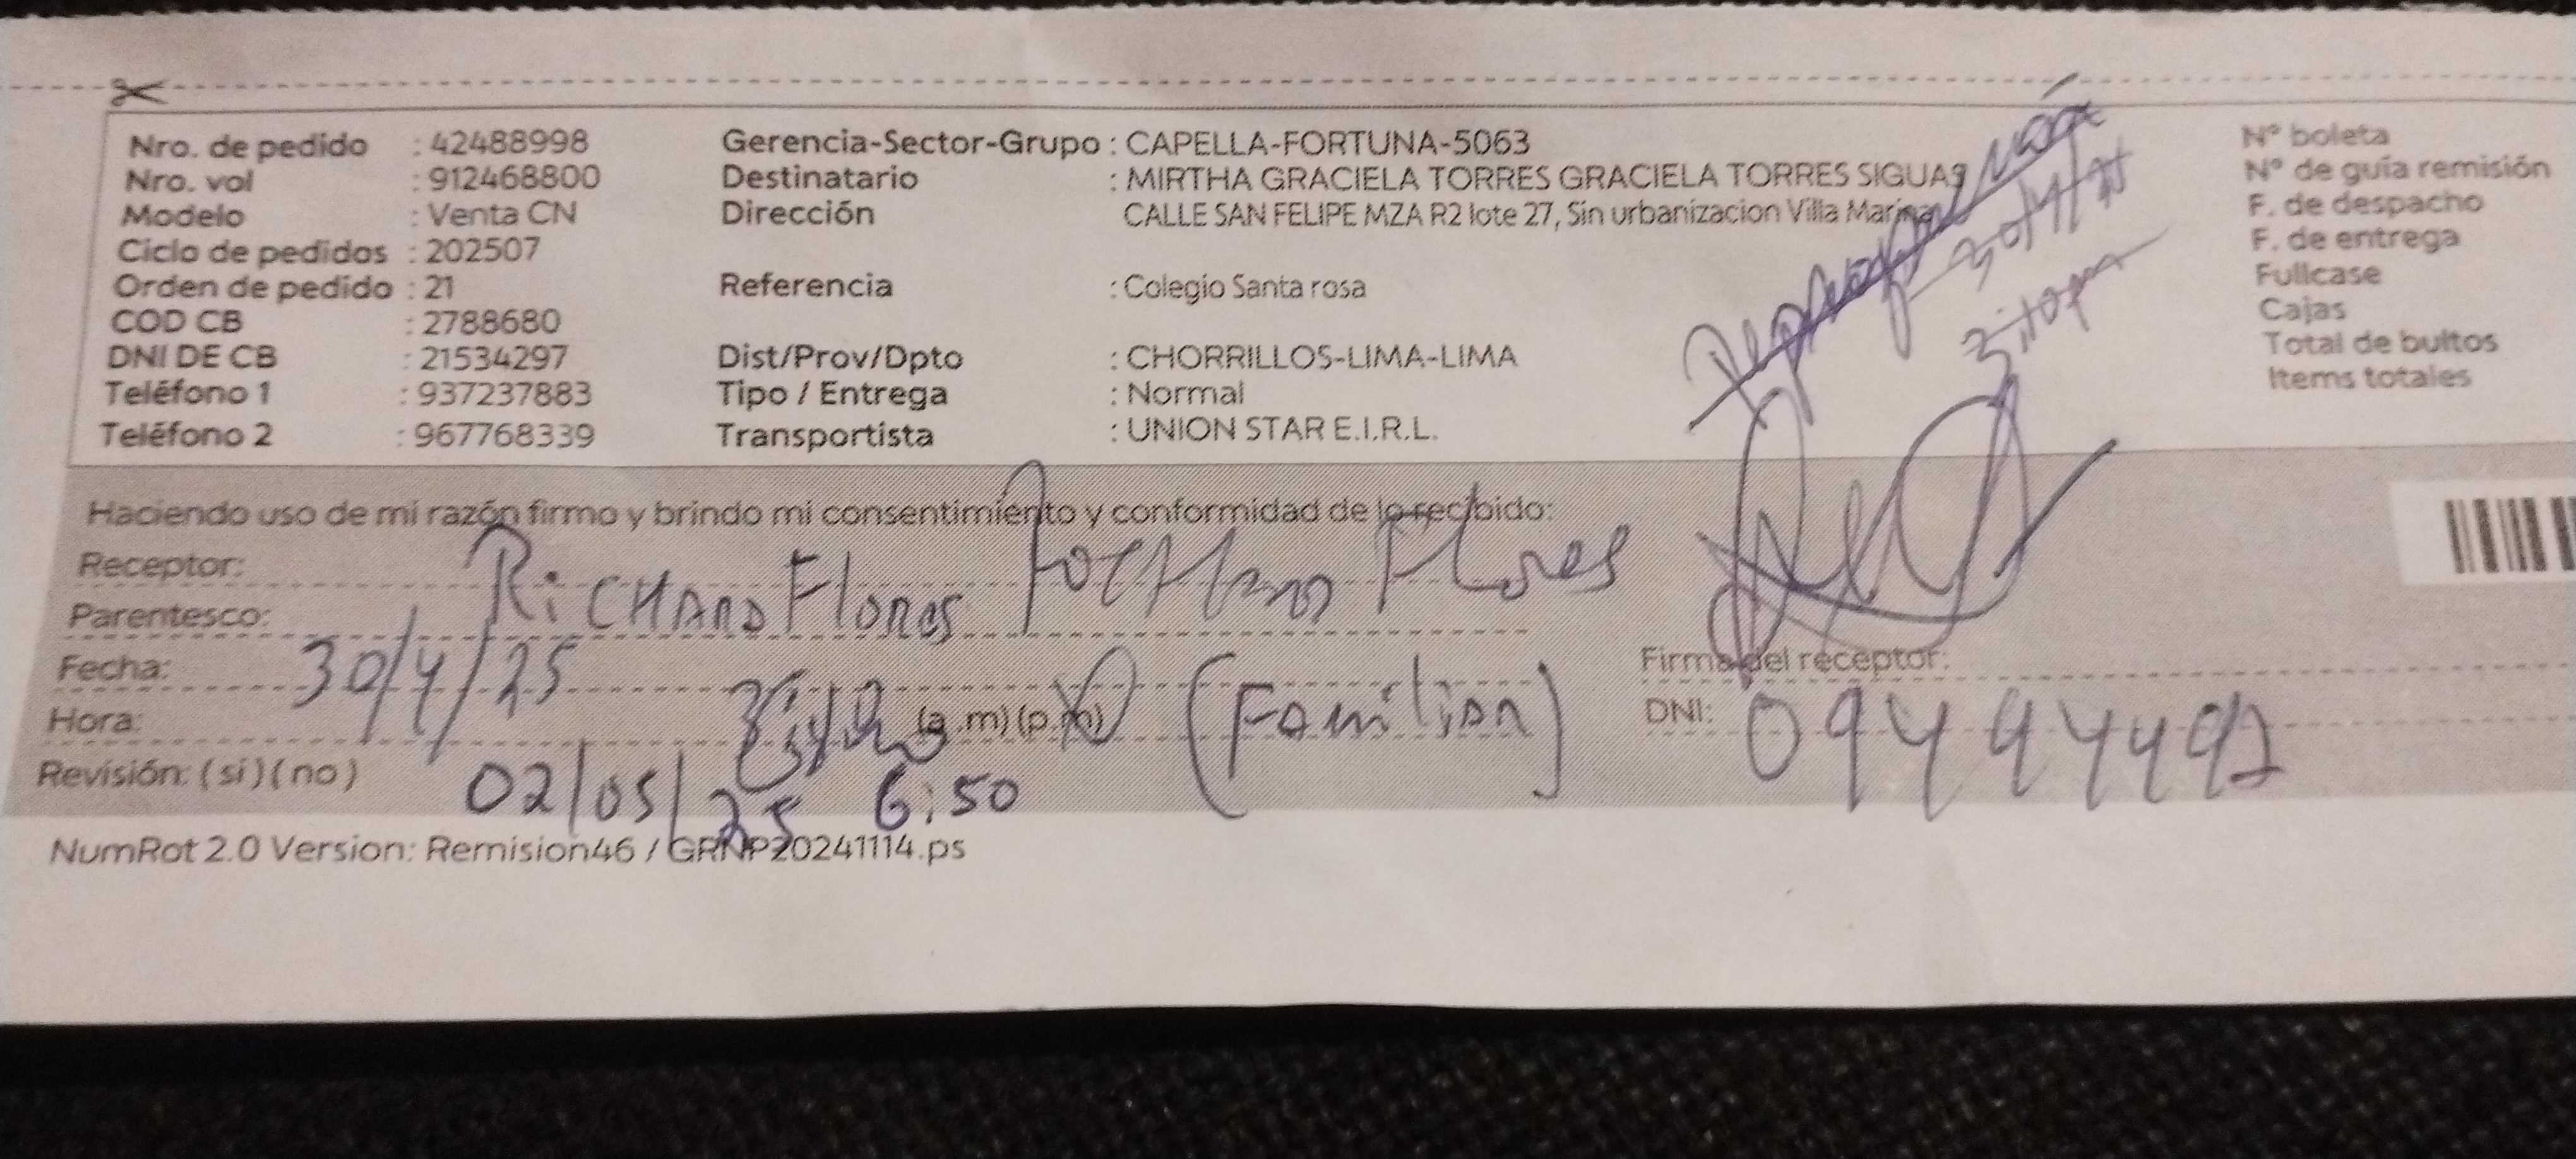 Nro. de pedido : 42488998
Nro. vol : 912468800
Modelo : Venta CN
Ciclo de pedidos : 202507
Orden de pedido : 21
COD CB : 2788680
DNI DE CB : 21534297
Teléfono 1 : 937237883
Teléfono 2 : 967768339
Gerencia-Sector-Grupo : CAPELLA-FORTUNA-5063
Destinatario : MIRTHA GRACIELA TORRES GRACIELA TORRES SIGUAS
Dirección CALLE SAN FELIPE MZA R2 lote 27, Sin urbanizacion Villa Marina
Referencia : Colegio Santa rosa
Dist/Prov/Dpto : CHORRILLOS-LIMA-LIMA
Tipo / Entrega : Normal
Transportista : UNION STAR E.I.R.L.
N° boleta
N° de guía remisión
F. de despacho
F. de entrega
Fullcase
Cajas
Total de bultos
Items totales
Haciendo uso de mi razón firmo y brindo mi consentimiento y conformidad de lo recibido:
Receptor: RICHARD FLORES Flores
Parentesco:
Fecha: 30/4/25
Hora: (a.m) (p.m) (Familiar)
Revisión: (si) (no) 02/05/25 6:50
Firma del receptor:
DNI: 09444492
NumRot 2.0 Version: Remision46 / GRNP20241114.ps